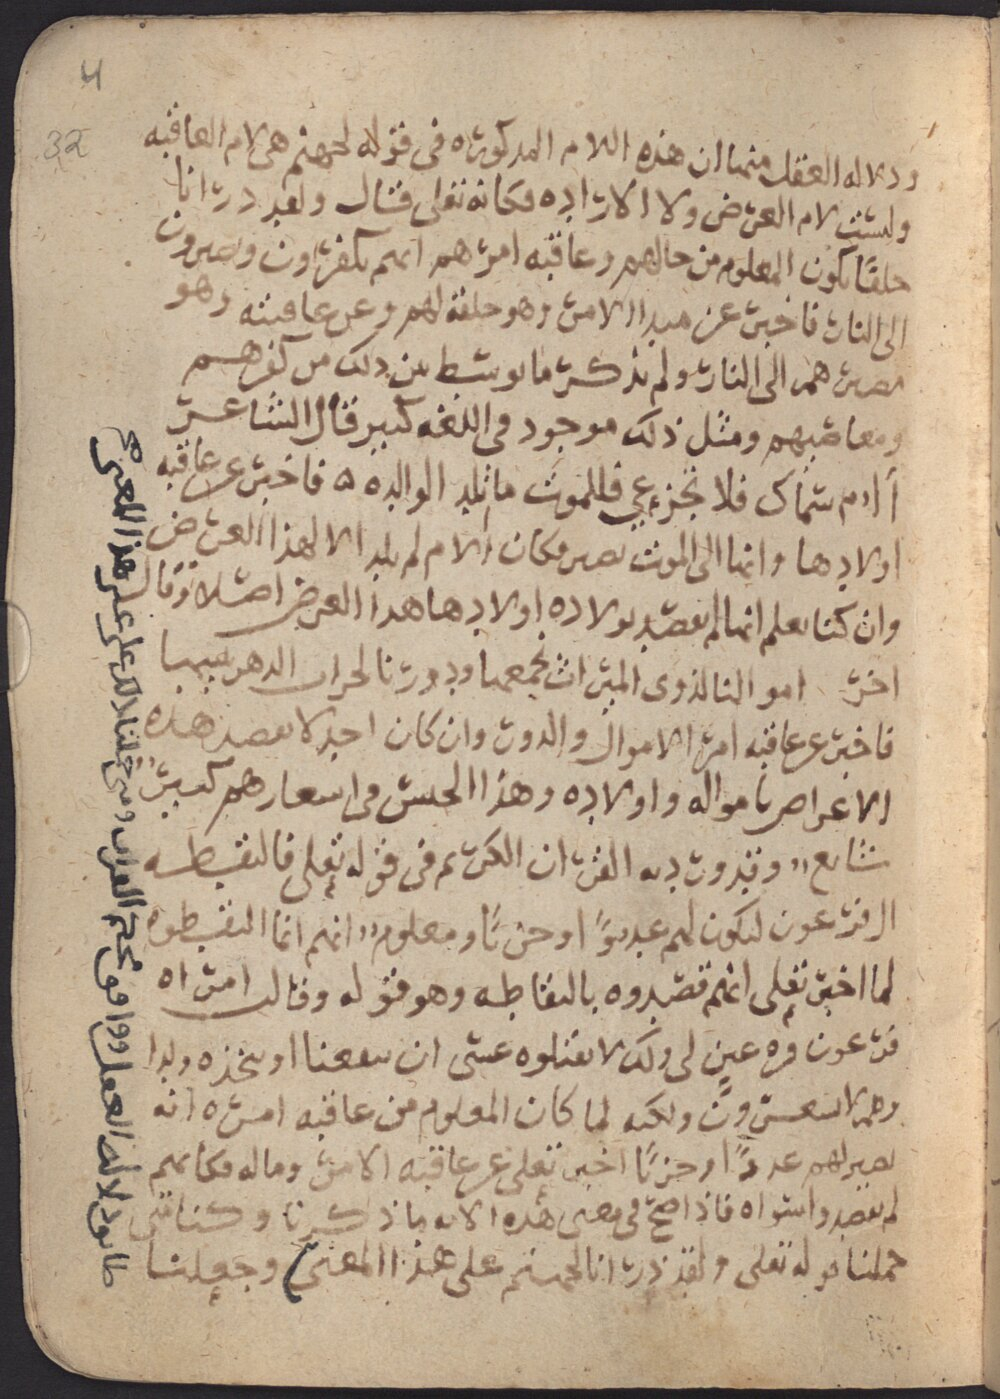 4
32
ودلاله العقل منهما ان هذه اللام المدكوره فى قوله لجهنم هى لام العاقبه
وليست لام الغرض ولا الاراده فكانه تعلى قال ولقد درانا
خلقًا يكون المعلوم من حالهم وعاقبه امرهم انهم يكفرون ويصيرون
الى النار فاخبر عن مبدا الامر وهو خلقه لهم وعن عاقبته وهو
مصيرهم الى النار ولم يذكر ما توسط بين ذلك من كفرهم
ومعاصيهم ومثل ذلك موجود فى اللغه كثير قال الشاعر
أام سماك فلا تجزعي فللموت ما تلد الوالده ه فاخبر عن عاقبه
اولادها وانها الى الموت تصير فكان الام لم تلد الا لهذا الغرض
وان كنا نعلم انها لم تقصد بولاده اولادها هدا الغرض اصلا وقال
اخر اموالنا لذوى الميراث نجمعها ودورنا لخراب الدهر نبنيها
فاخبر عن عاقبه امر الاموال والدور وان كان احد لا يقصد هذه
الاغراض بامواله واولاده وهذا الجنس فى اشعارهم كثير
شايع وقد ورد به القران الكريم فى قوله تعلى فالتقطه
ال فرعون ليكون لهم عدوًا وحزنًا ومعلوم انهم انما التقطوه
لما اخبر تعلى انهم قصدوه بالتقاطه وهو قوله وقالت امراه
فرعون قره عين لى ولك لا تقتلوه عسى ان ينفعنا او نتخذه ولدا
وهم لا يشعرون ولكنه لما كان المعلوم من عاقبه امره انه
يصير لهم عدوًا وحزنًا اخبر تعلى عن عاقبه الامر وماله فكانهم
لم يقصدوا سواه فاذا صح فى معنى هذه الايه ما ذكرنا وكنا متى
حملنا قوله تعلى ولقد ذرانا لجهنم على هذا المعنى وجعلنا
طابق دلاله العقل ووافق محكم القران ومتى حملنا ذلك على غير هذا المعنى